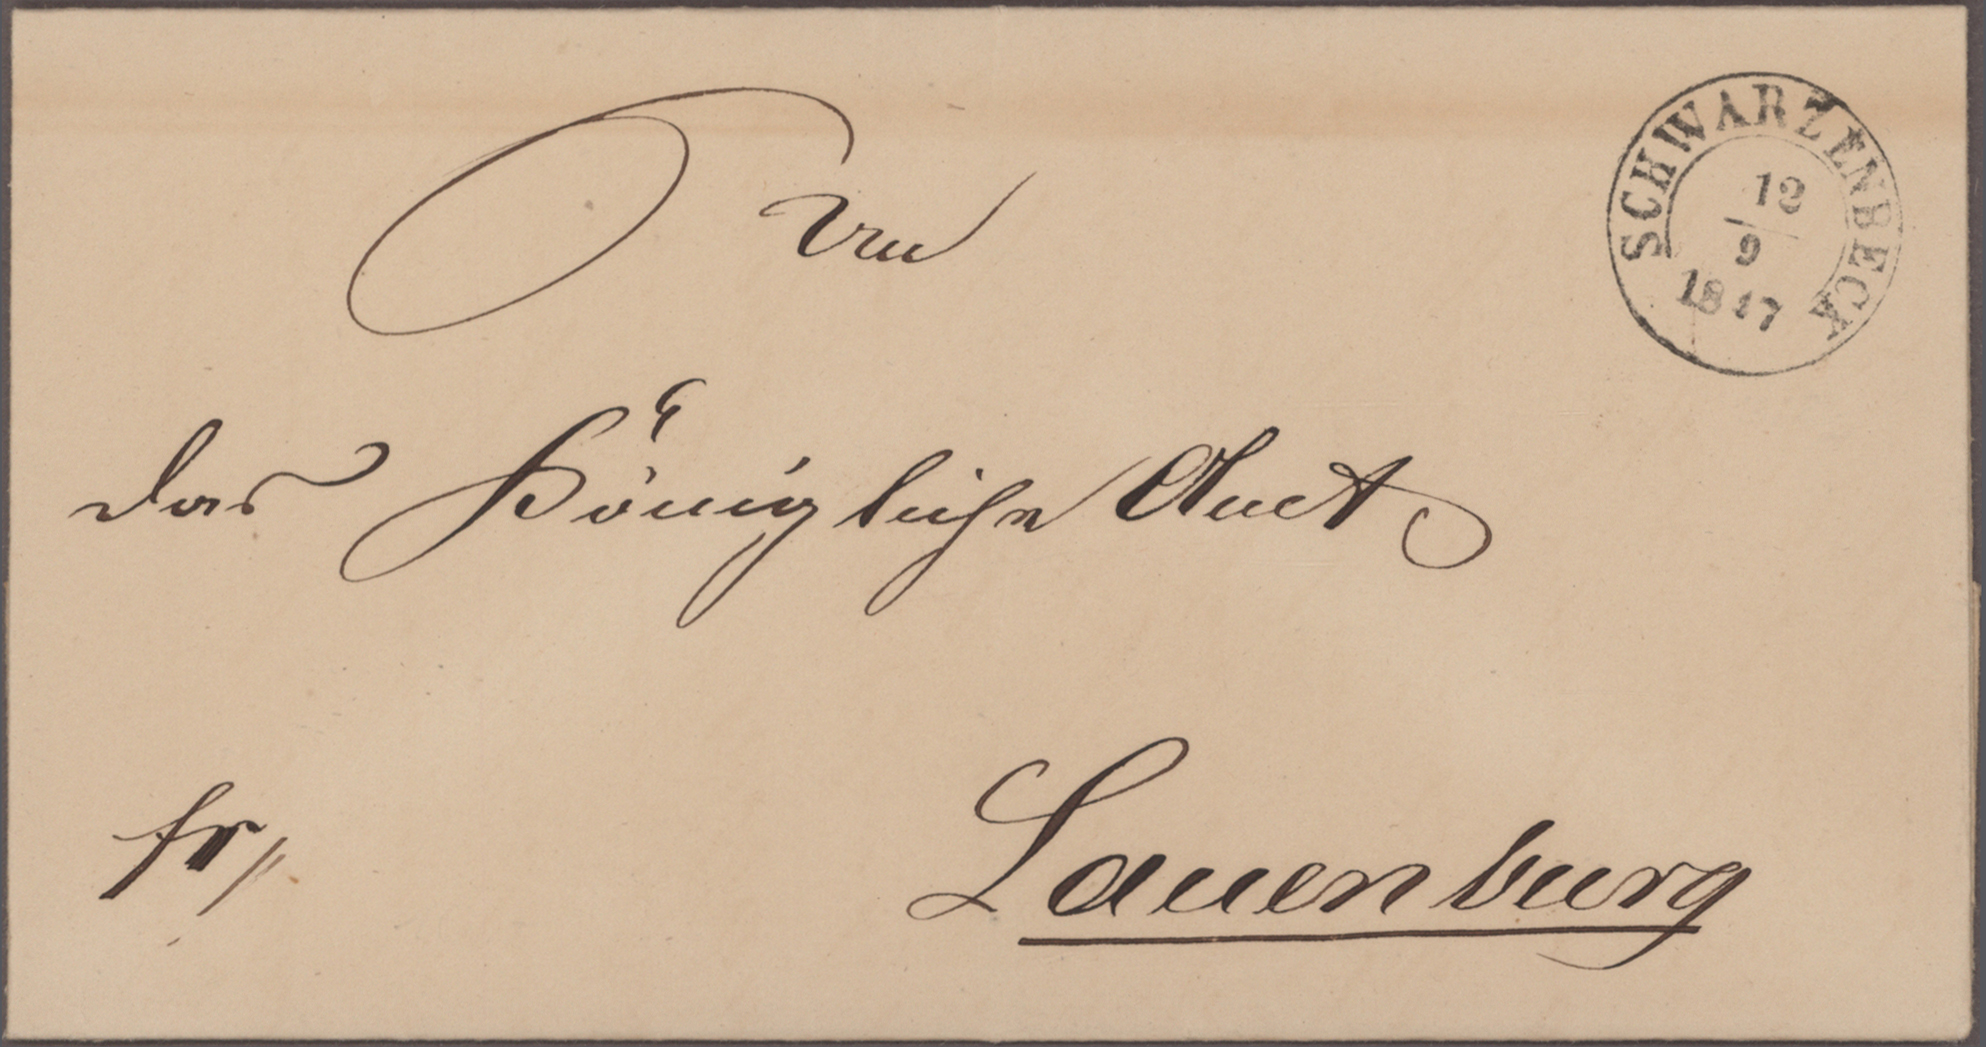 SCHWARZENBECK
12
9
1847
An
das Königliche Amt
fr
Lauenburg